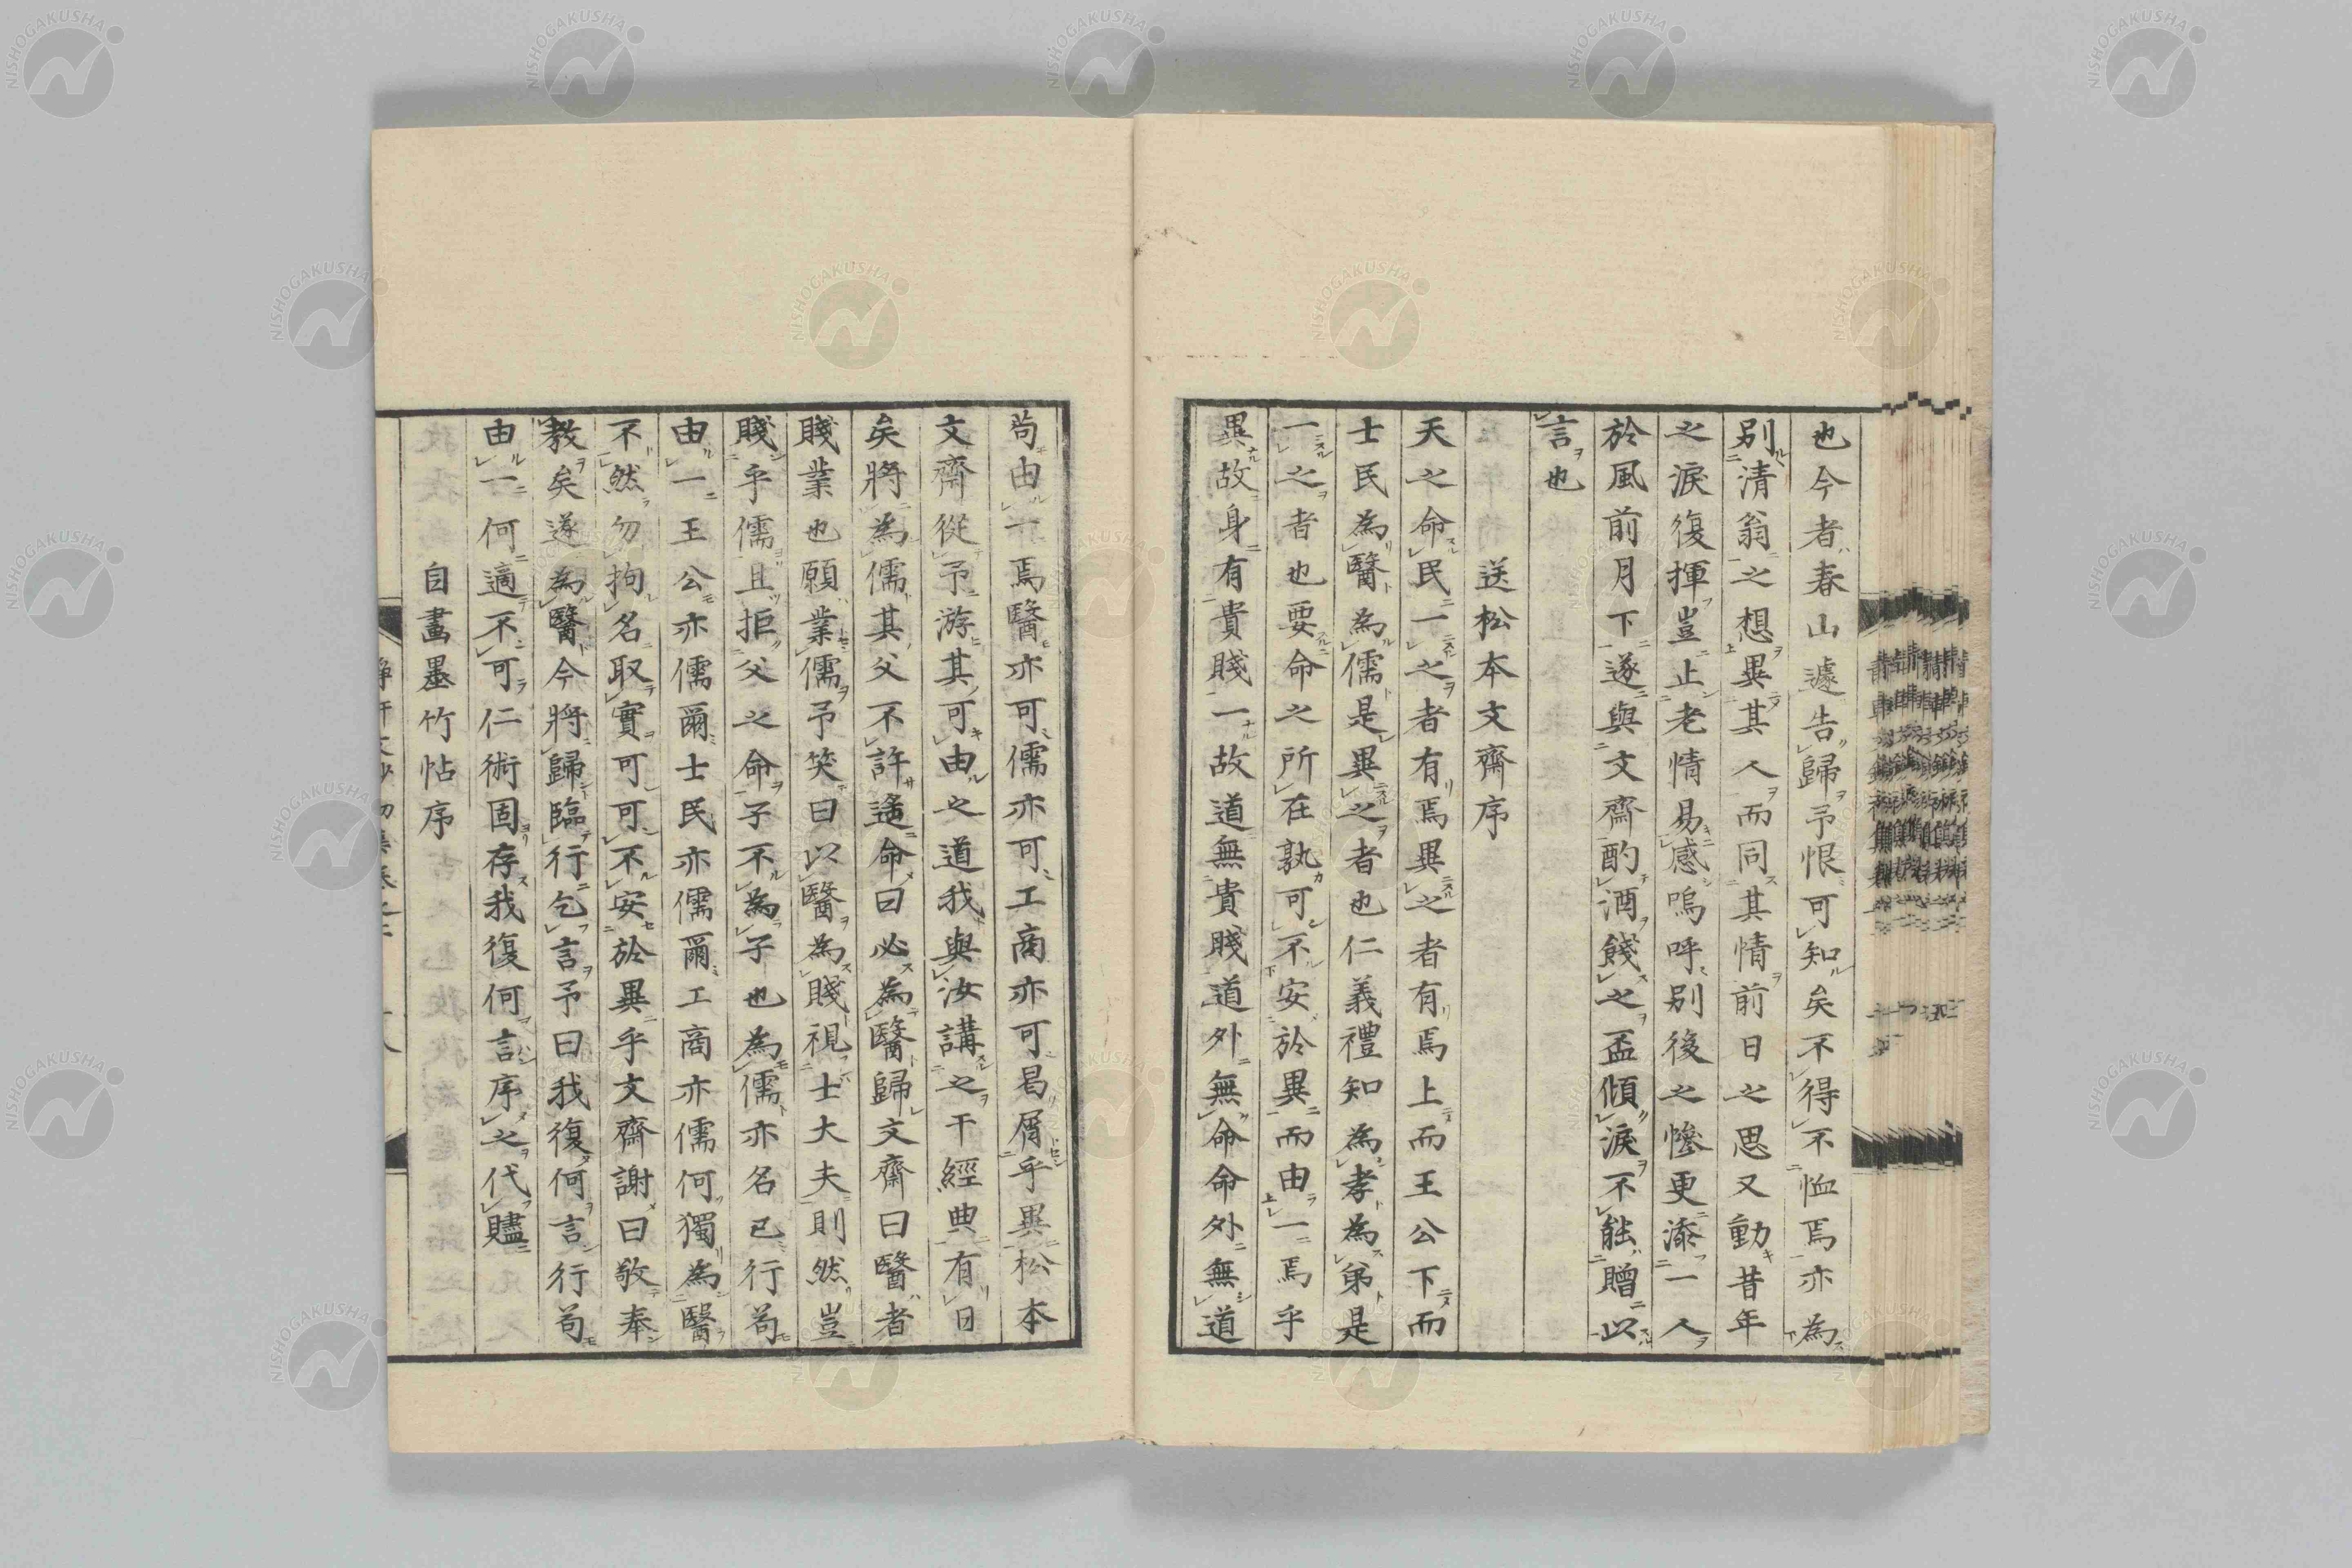 也今者春山遽告歸予恨可知矣不得不恤焉亦為
別清翁之想異其人而同其情前日之思又動昔年
之淚復揮豈止老情易感嗚呼別後之慘更添一人
於風前月下遂與文齋酌酒餞之盃傾淚不能贈以
言也
送松本文齋序
天之命民一之者有焉異之者有焉上而王公下而
士民為醫為儒是異之者也仁義禮知為孝為弟是
一之者也要命之所在孰可不安於異而由一焉乎
異故身有貴賤一故道無貴賤道外無命命外無道
苟由一焉醫亦可儒亦可工商亦可曷屑乎異松本
文齋從予游其可由之道我與汝講之干經典有日
矣將為儒其父不許遙命曰必為醫歸文齋曰醫者
賤業也願業儒予笑曰以醫為賤視士大夫則然豈
賤乎儒且拒父之命子不為子也為儒亦名已行苟
由一王公亦儒爾士民亦儒爾工商亦儒何獨為醫
不然勿拘名取實可可不安於異乎文齋謝曰敬奉
教矣遂為醫今將歸臨行乞言予曰我復何言行苟
由一何適不可仁術固存我復何言序之代贐
自畫墨竹帖序
NISHOGAKUSHA